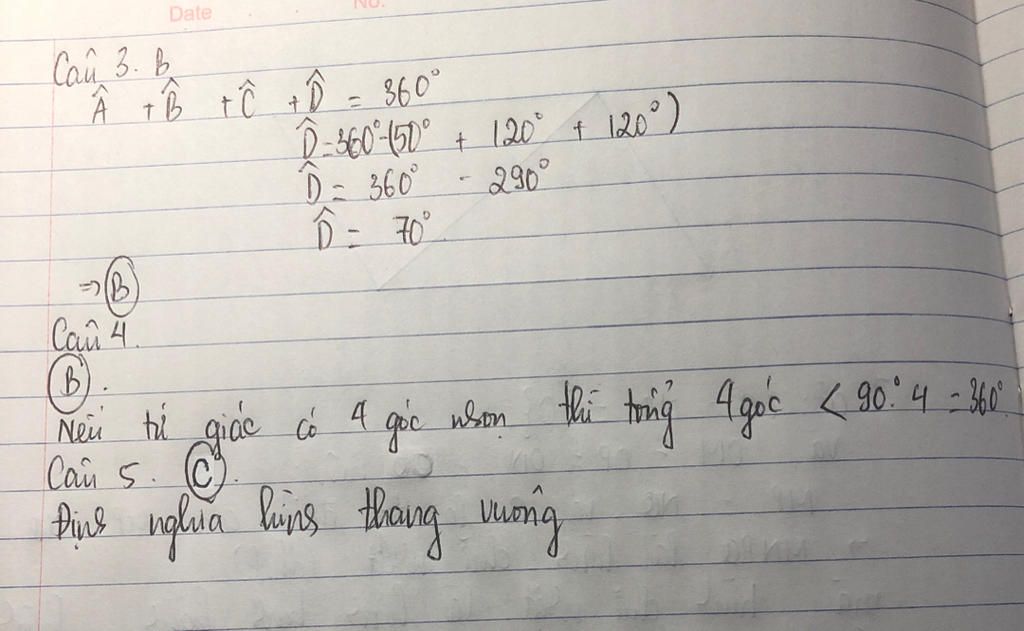 Date No.
Câu 3. B
Â + B̂ + Ĉ + D̂ = 360°
D̂ = 360° - (50° + 120° + 120°)
D̂ = 360° - 290°
D̂ = 70°
⇒ B
Câu 4.
B.
Nếu tứ giác có 4 góc nhọn thì tổng 4 góc < 90°. 4 = 360°.
Câu 5. C.
Định nghĩa hình thang vuông